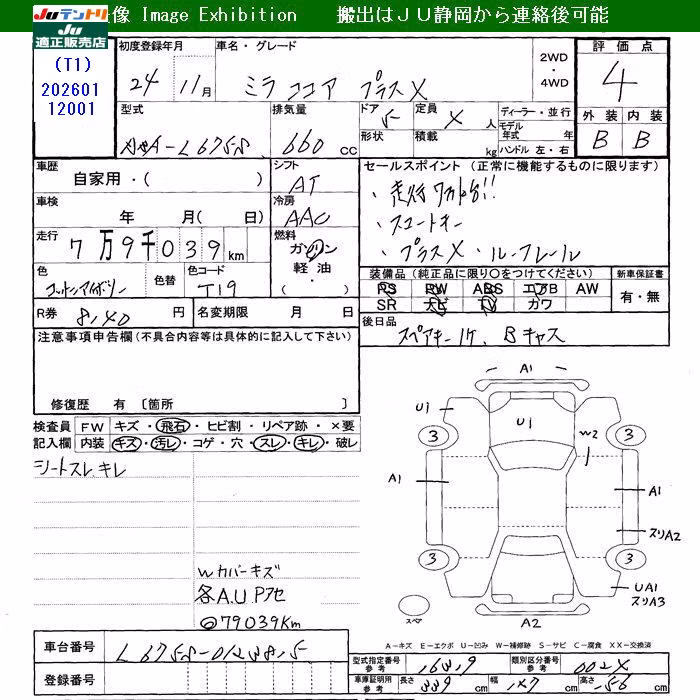 像 Image Exhibition 搬出はＪＵ静岡から連絡後可能
JUテントリ
JU
適正販売店
(T1)
202601
12001
初度登録年月
24 11月
車名・グレード
ミラ ココア プラスX
2WD
・
4WD
評価点
4
外装 内装
B B
型式
排気量
660 cc
ドア
5
形状
定員
人
積載
kg
ディーラー・並行
モデル
年式 年
ハンドル 左・右
車歴
自家用・( )
シフト
AT
車検
年 月( 日)
冷房
AAC
走行
7万9千039km
燃料
ガソリン
軽油
・( )
色
コットンアイボリー
色替
色コード
T19
R券
8,140 円
名変期限 月 日
セールスポイント (正常に機能するものに限ります)
・走行7万km台!!
・スマートキー
・プラスX・ルーフレール
装備品 (純正品に限り○をつけてください)
PS PW ABS エアB AW
SR ナビ TV カワ
新車保証書
有・無
後日品
スペアキー1ケ、Bキャス
注意事項申告欄(不具合内容等は具体的に記入して下さい)
修復歴 有 〔箇所 〕
検査員
記入欄
FW キズ・飛石・ヒビ割・リペア跡・×要
内装 キズ・汚レ・コゲ・穴・スレ・キレ・破レ
シートスレ、キレ
Wカバーキズ
各A.U Pアセ
◎79039Km
A1
U1
U1
W2
3
3
A1
A1
スリA2
3
3
UA1
スリA3
スペア
A2
A-キズ E-エクボ U-凹み W-補修跡 S-サビ C-腐食 XX-交換済
車台番号
登録番号
型式指定番号
参考
類別区分番号
参考
車庫証明用
参考
長さ
339 cm
幅
147 cm
高さ
156 cm